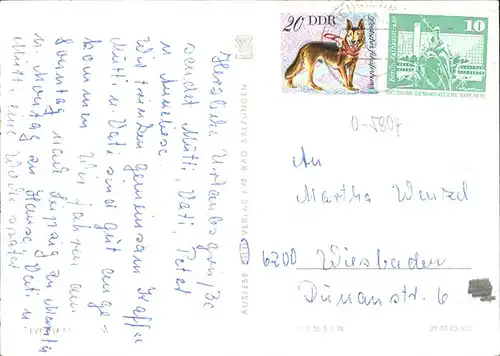 Herzliche Urlaubsgrüße
sendet Mutti, Vati, Peter
u. Anneliese.
Wir trinken gemeinsam Kaffee
Mutti u. Vati sind gut ange=
kommen Wir fahren am
Sonntag nach Leipzig zu
u. Montag zu Hause. Vati u.
Mutti eine Woche später
AUSLESE VERLAG BAD SALZUNGEN
20 DDR
10
DEUTSCHE DEMOKRATISCHE REPUBLIK
0-5804
An
Martha Wenzel
6200 Wiesbaden
Dünanstr. 6